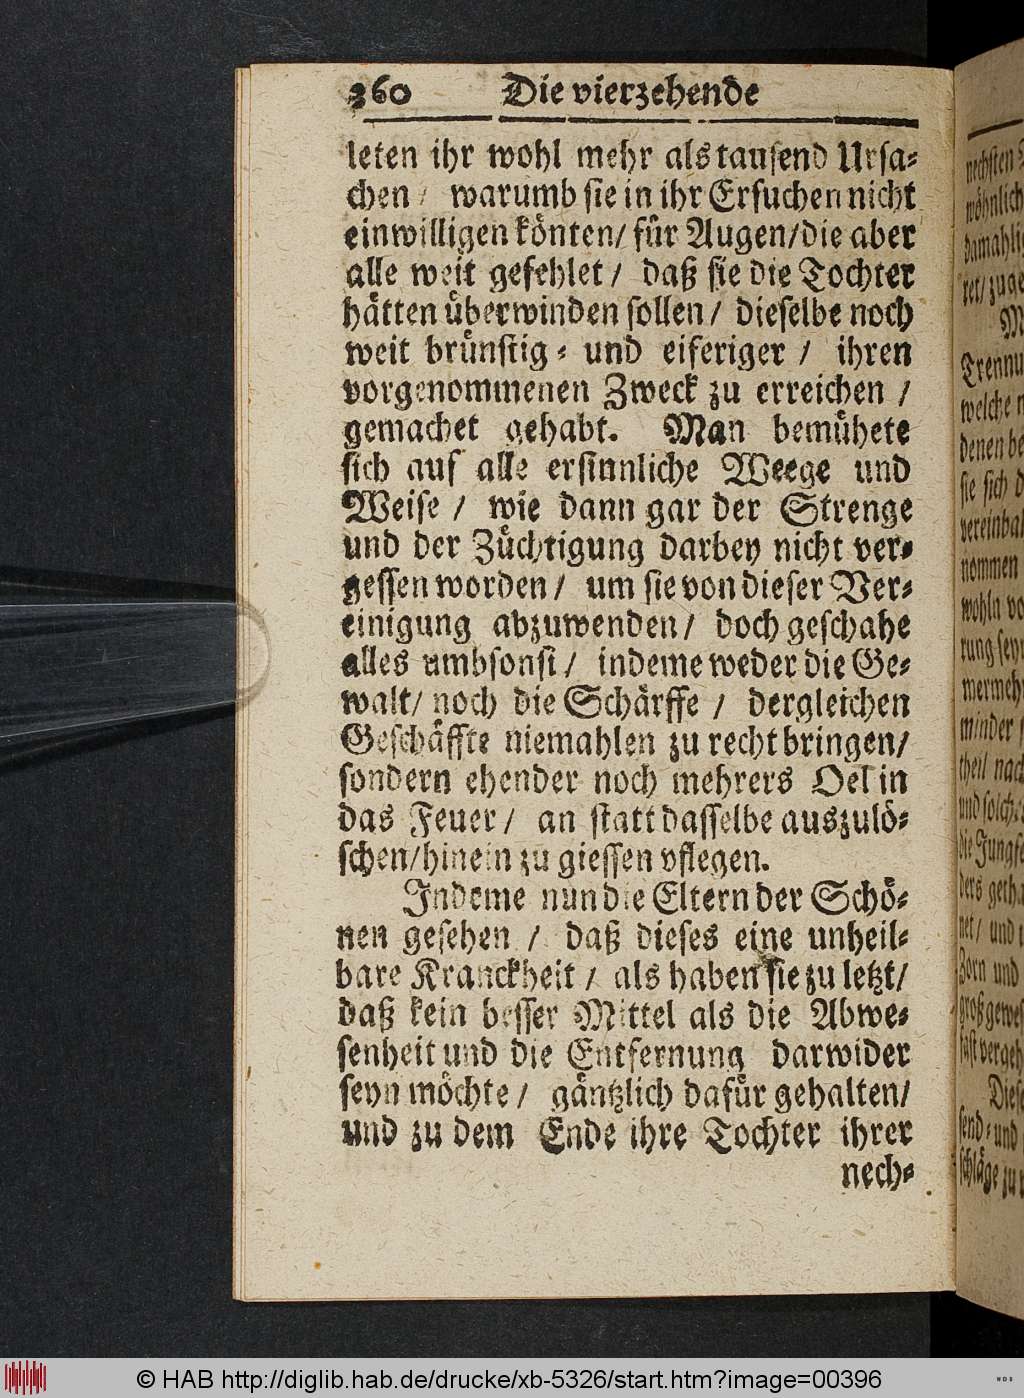 360 Die vierzehende
leten ihr wohl mehr als tausend Ursa-
chen / warumb sie in ihr Ersuchen nicht
einwilligen könten / für Augen / die aber
alle weit gefehlet / daß sie die Tochter
hätten überwinden sollen / dieselbe noch
weit brünstig- und eiferiger / ihren
vorgenommenen Zweck zu erreichen /
gemachet gehabt. Man bemühete
sich auf alle ersinnliche Weege und
Weise / wie dann gar der Strenge
und der Züchtigung darbey nicht ver-
gessen worden / um sie von dieser Ver-
einigung abzuwenden / doch geschahe
alles umbsonst / indeme weder die Ge-
walt / noch die Schärffe / dergleichen
Geschäffte niemahlen zu recht bringen /
sondern ehender noch mehrers Oel in
das Feuer / an statt dasselbe auszulö-
schen / hinein zu giessen pflegen.
Indeme nun die Eltern der Schö-
nen gesehen / daß dieses eine unheil-
bare Kranckheit / als haben sie zu letzt /
daß kein besser Mittel als die Abwe-
senheit und die Entfernung darwider
seyn möchte / gäntzlich dafür gehalten /
und zu dem Ende ihre Tochter ihrer
nech-
© HAB http://diglib.hab.de/drucke/xb-5326/start.htm?image=00396